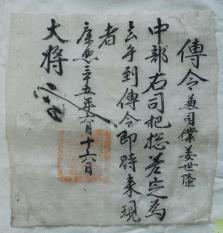 傳令 兼司僕姜世隆
中部右司把摠差定爲
去乎到傳令卽時來現
者
康熙三十五年六月十六日
大將